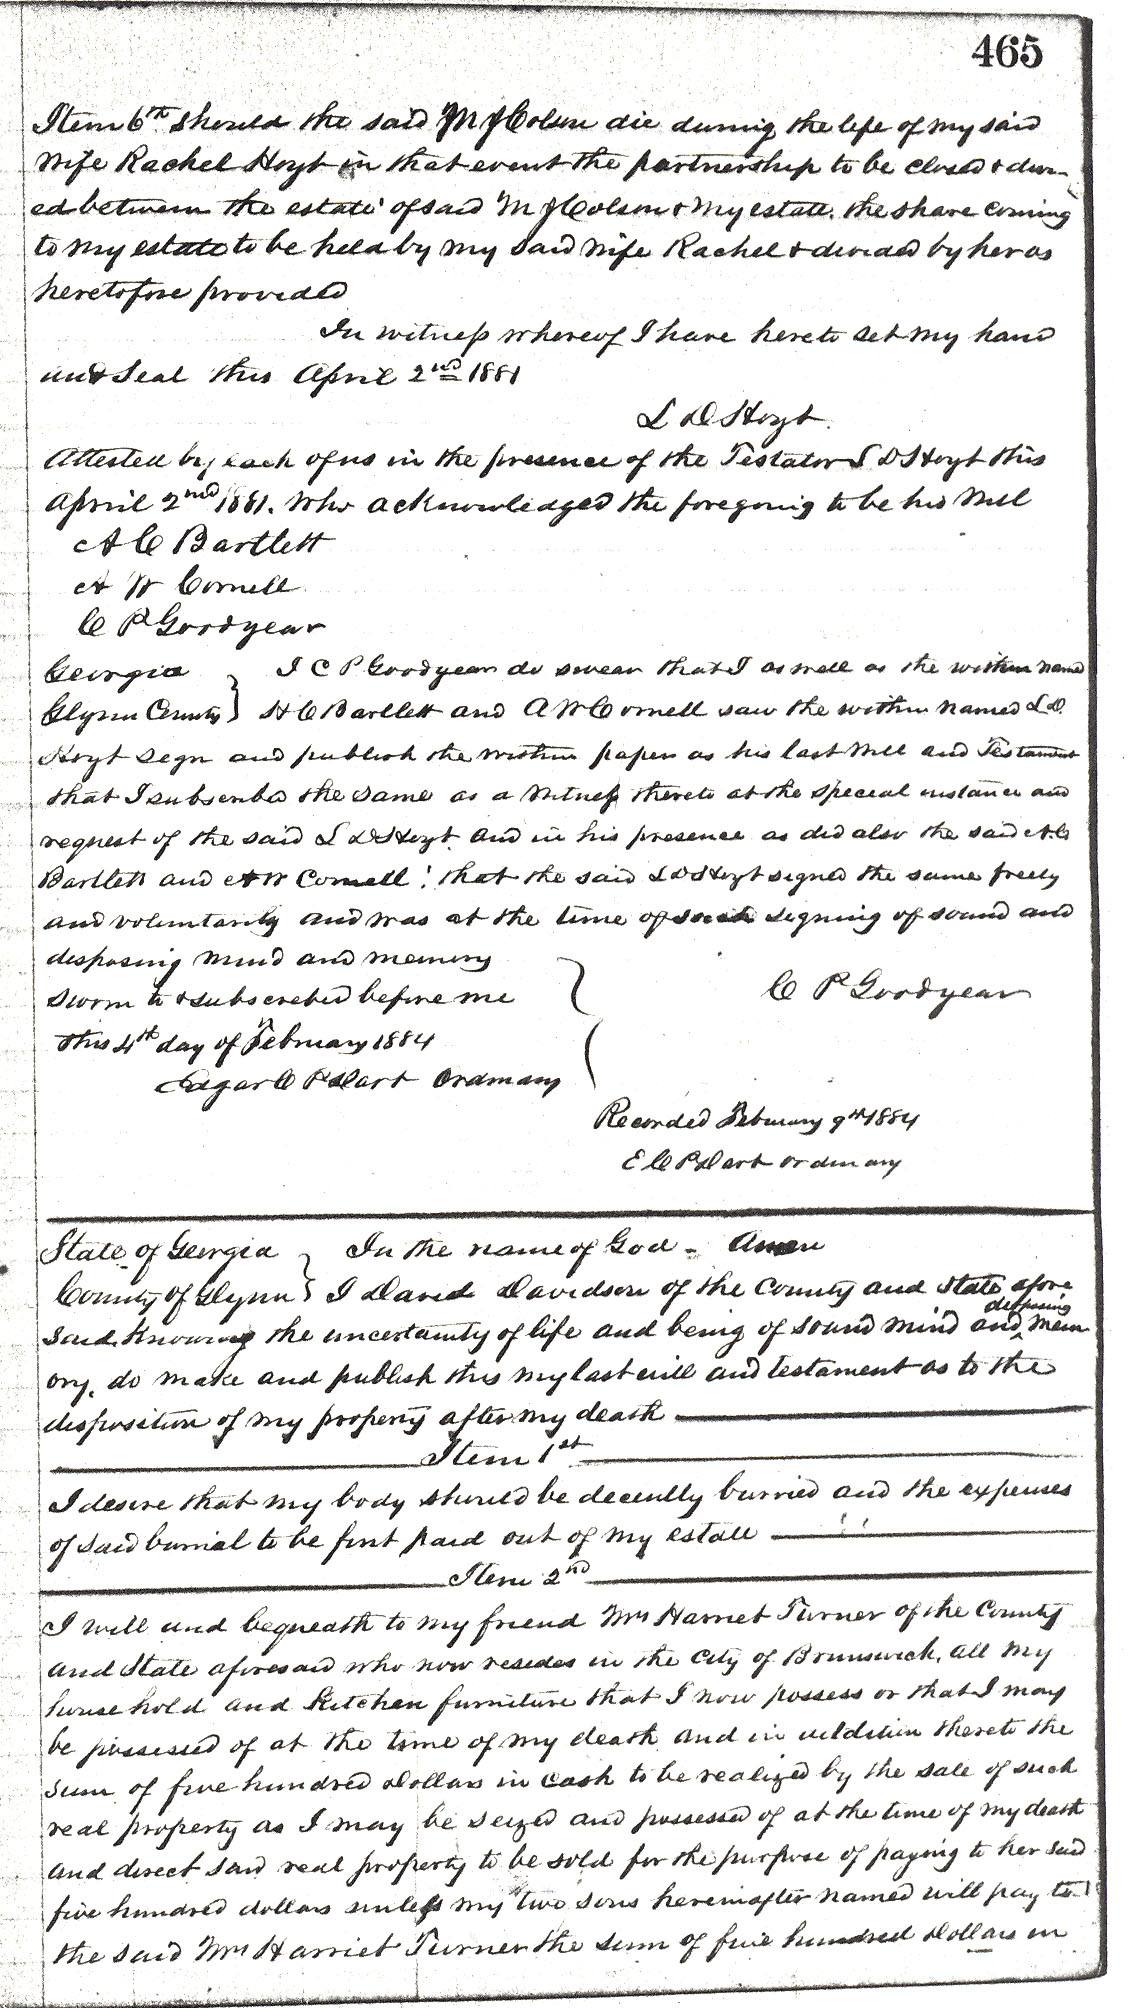 465
Item 6th should the said M J Colson die during the life of my said
wife Rachel Hoyt in that event the partnership to be closed & divi-
ed between the estate of said M J Colson & my estate. the share coming
to my estate to be held by my said wife Rachel & divided by her as
heretofore provided
In witness whereof I have hereto set my hand
and Seal this April 2nd 1881
L D Hoyt.
Attested by each of us in the presence of the Testator L D Hoyt this
April 2nd 1881. who acknowledged the foregoing to be his Will
A C Bartlett
A W Cornell
C P Goodyear
Georgia } I C P Goodyear do swear that I as well as the within name
Glynn County } H C Bartlett and A W Cornell saw the within named L D.
Hoyt sign and publish the within paper as his last Will and Testament
that I subscribed the same as a Witness thereto at the special instance and
request of the said L D Hoyt. and in his presence as did also the said A C
Bartlett and A W Cornell: that the said L D Hoyt signed the same freely
and voluntarily and was at the time of such signing of sound and
disposing mind and memory
Sworn to & subscribed before me } C P Goodyear
this 4th day of February 1884
Edgar C P Dart Ordinary
Recorded February 9th 1884
E C P Dart Ordinary
State of Georgia } In the name of God - Amen
County of Glynn } I David Davidson of the County and State afore
disposing
said Knowing the uncertainty of life and being of sound mind and ^ mem
ory, do make and publish this my last will and testament as to the
disposition of my property after my death
Item 1st
I desire that my body should be decently burried and the expenses
of said burrial to be first paid out of my estate
Item 2nd
I will and bequeath to my friend Mrs Harriet Turner of the County
and State aforesaid who now resides in the City of Brunswick, all my
household and Kitchen furniture that I now possess or that I may
be possessed of at the time of my death and in addition thereto the
sum of five hundred Dollars in cash to be realized by the sale of such
real property as I may be seized and possessed of at the time of my death
and direct said real property to be sold for the purpose of paying to her said
five hundred dollars unless my two sons hereinafter named will pay to
the said Mrs Harriet Turner the sum of five hundred Dollars in